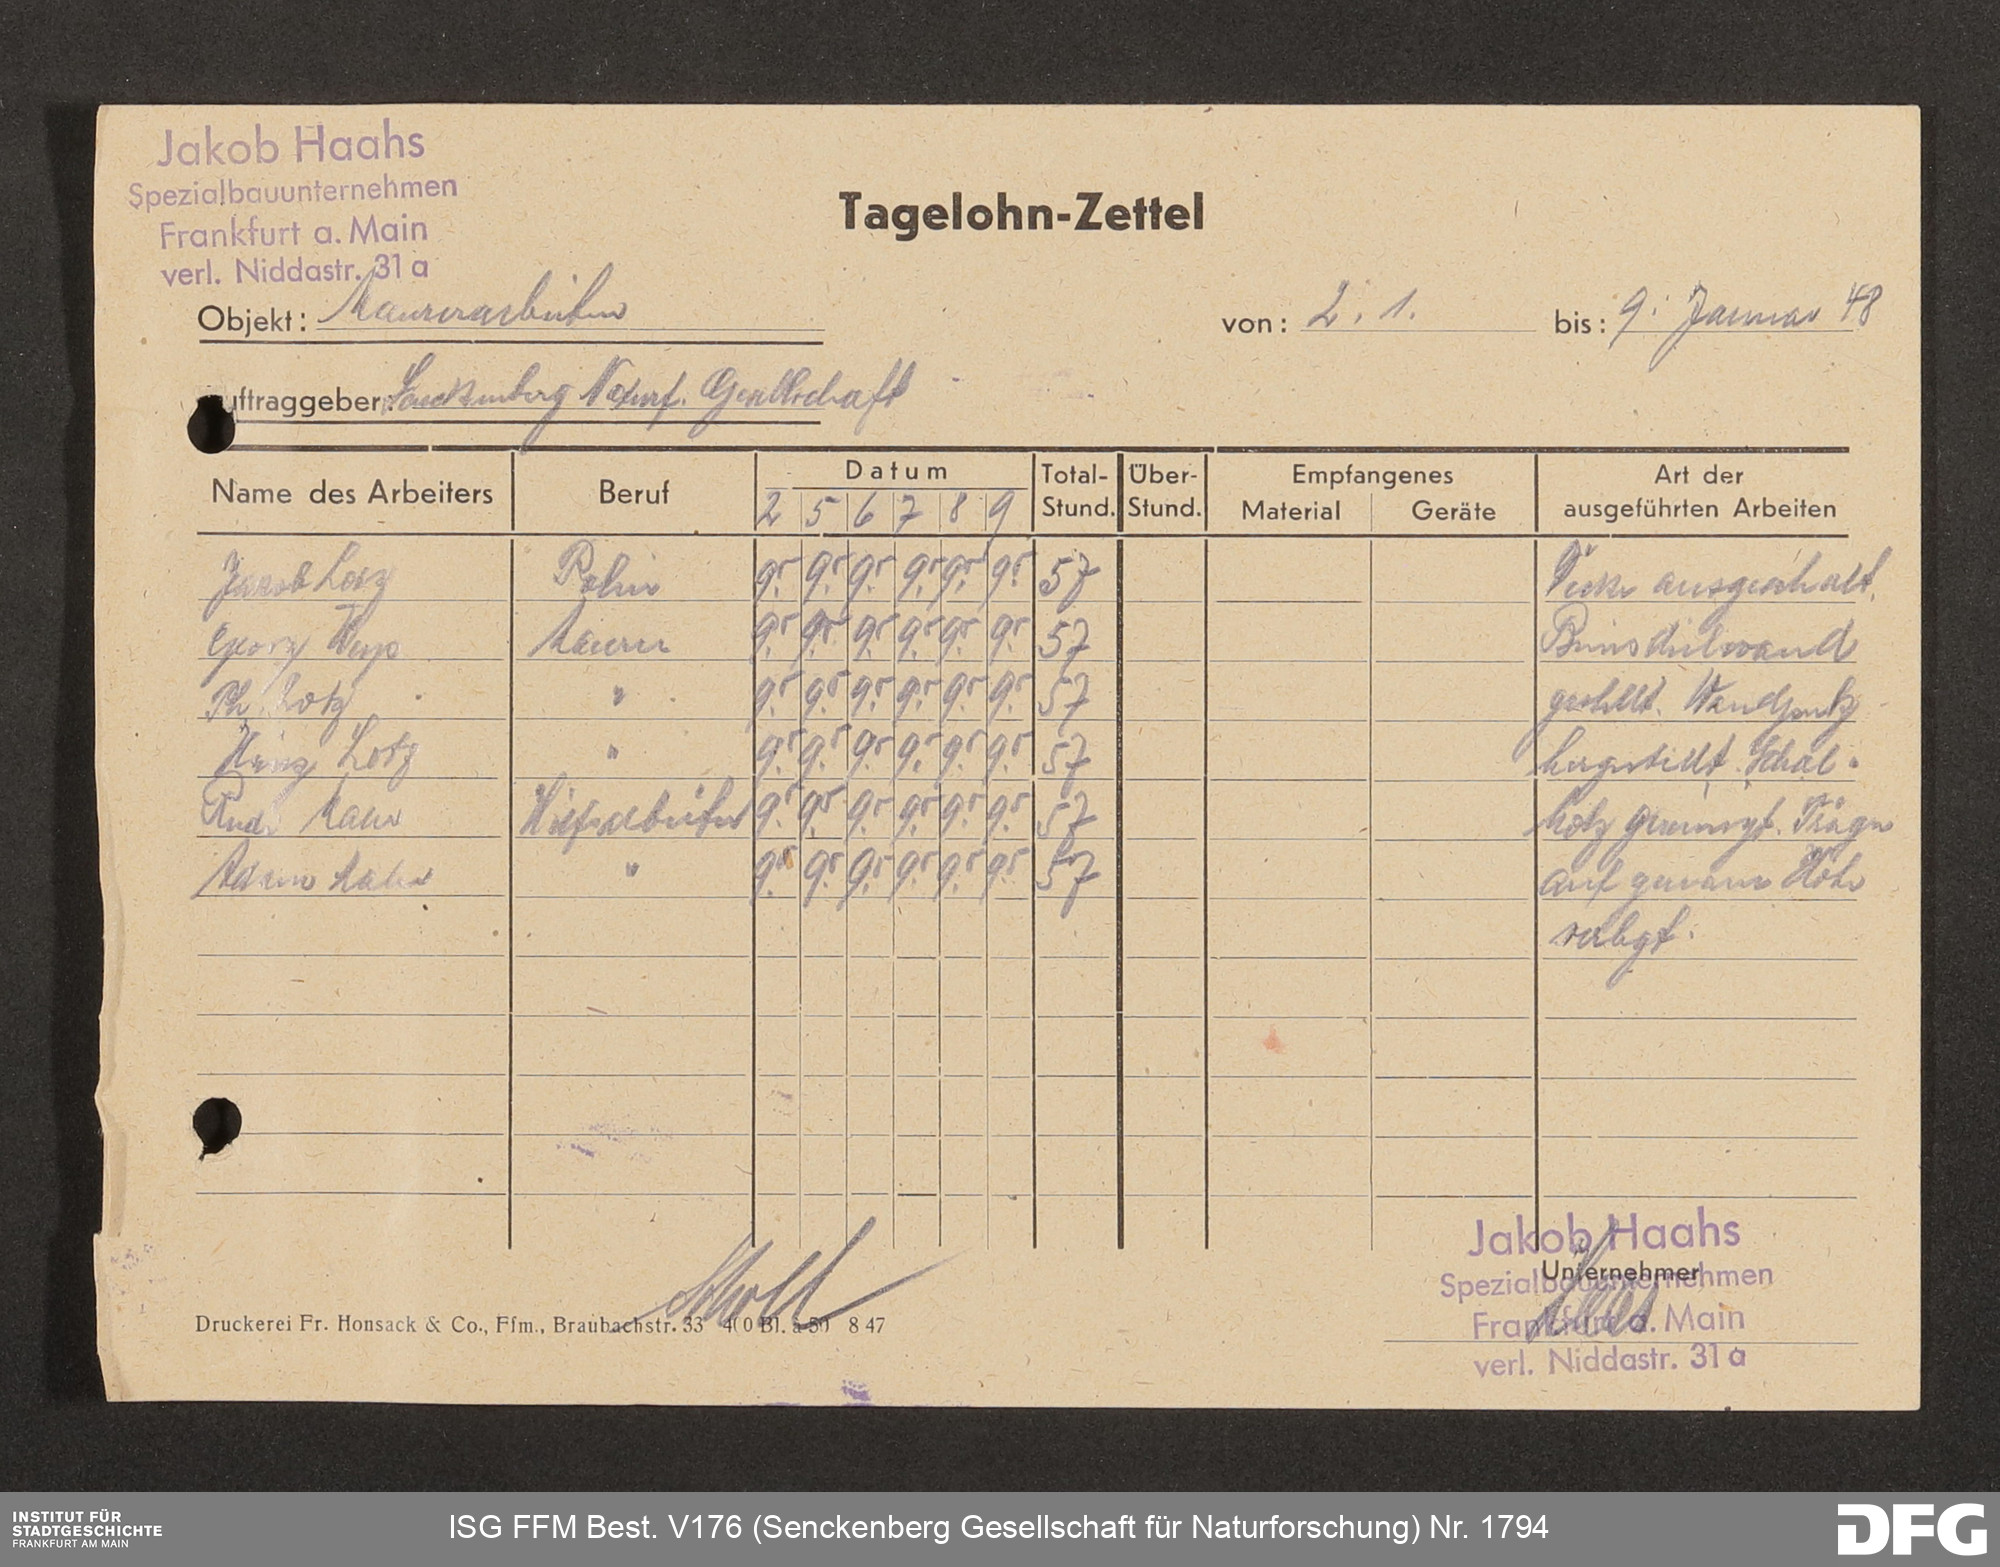 Jakob Haahs
Spezialbauunternehmen
Frankfurt a. Main
verl. Niddastr. 31 a
Tagelohn-Zettel
Objekt: Maurerarbeiten
von: 2. 1. bis: 9. Januar 48
Auftraggeber: Senckenberg Naturf. Gesellschaft
Name des Arbeiters Beruf Datum Total-Stund. Über-Stund. Empfangenes Material Geräte Art der ausgeführten Arbeiten
2 5 6 7 8 9
Jakob Lotz Polier 9.5 9.5 9.5 9.5 9.5 9.5 57 Decke ausgeschalt.
Georg Maurer 9.5 9.5 9.5 9.5 9.5 9.5 57 Bimsdielwand
Ph. Lotz " 9.5 9.5 9.5 9.5 9.5 9.5 57 gestellt. Wandputz
Heinz Lotz " 9.5 9.5 9.5 9.5 9.5 9.5 57 hergestellt. Schal-
Rudi Maler Hilfsarbeiter 9.5 9.5 9.5 9.5 9.5 9.5 57 holz gereinigt. Träger
Adam Maler " 9.5 9.5 9.5 9.5 9.5 9.5 57 auf genaue Höhe
verlegt.
Jakob Haahs
Unternehmer
Spezialbauunternehmen
Frankfurt a. Main
verl. Niddastr. 31 a
Druckerei Fr. Honsack & Co., Ffm., Braubachstr. 33 400 Bl. à 50 8 47
INSTITUT FÜR
STADTGESCHICHTE
FRANKFURT AM MAIN
ISG FFM Best. V176 (Senckenberg Gesellschaft für Naturforschung) Nr. 1794
DFG